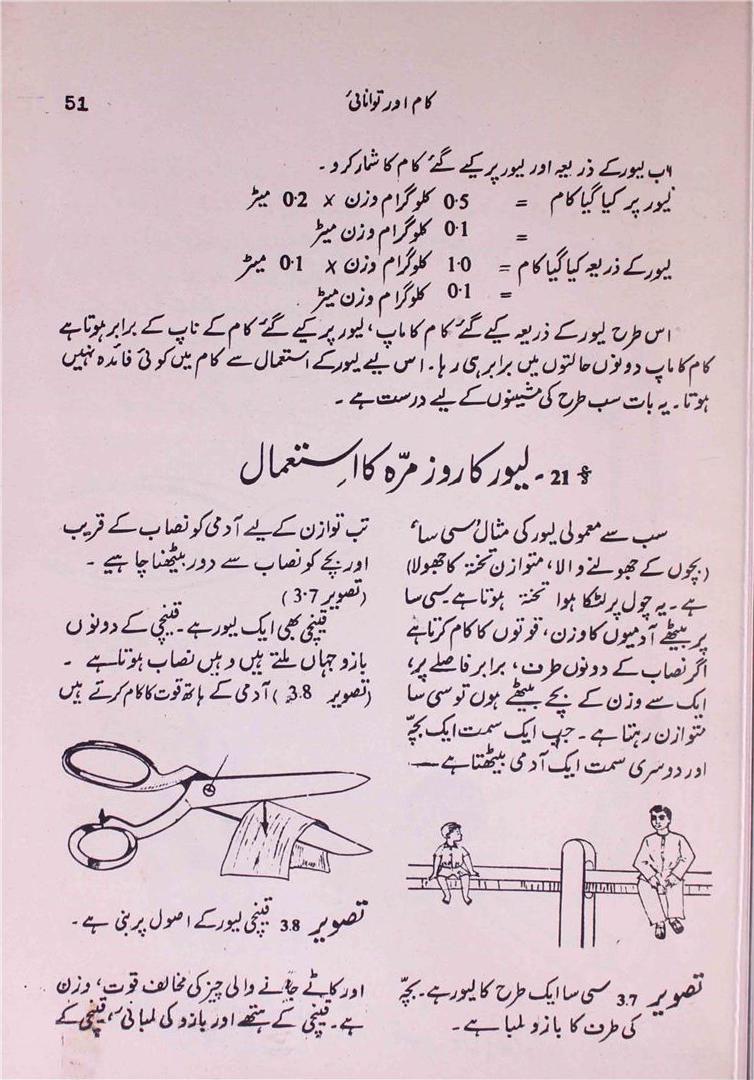 کام اور توانائی
51
اب لیور کے ذریعہ اور لیور پر کیے گئے کام کا شمار کرو۔
لیور پر کیا گیا کام = 0.5 کلو گرام وزن × 0.2 میٹر
= 0.1 کلو گرام وزن میٹر
لیور کے ذریعہ کیا گیا کام = 1.0 کلو گرام وزن × 0.1 میٹر
= 0.1 کلو گرام وزن میٹر
اس طرح لیور کے ذریعہ کیے گئے کام کا ماپ، لیور پر کیے گئے کام کے ناپ کے برابر ہوتا ہے
کام کا ماپ دونوں حالتوں میں برابر ہی رہا۔ اس لیے لیور کے استعمال سے کام میں کوئی فائدہ نہیں
ہوتا۔ یہ بات سب طرح کی مشینوں کے لیے درست ہے۔
§ 21۔ لیور کا روز مرّہ کا اِستعمال
سب سے معمولی لیور کی مثال ’سی سا‘
(بچوں کے جھولنے والا، متوازن تختہ کا جھولا)
ہے۔ یہ چول پر لٹکا ہوا تختہ ہوتا ہے سی سا
پر بیٹھے آدمیوں کا وزن، قوتوں کا کام کرتا ہے
اگر نصاب کے دونوں طرف، برابر فاصلے پر،
ایک سے وزن کے بچے بیٹھے ہوں تو سی سا
متوازن رہتا ہے۔ جب ایک سمت ایک بچّہ
اور دوسری سمت ایک آدمی بیٹھتا ہے —
تصویر 3.7 سی سا ایک طرح کا لیور ہے۔ بچّہ
کی طرف کا بازو لمبا ہے۔
تب توازن کے لیے آدمی کو نصاب کے قریب
اور بچے کو نصاب سے دور بیٹھنا چاہیے۔
(تصویر 3.7)
قینچی بھی ایک لیور ہے۔ قینچی کے دونوں
بازو جہاں ملتے ہیں وہیں نصاب ہوتا ہے۔
(تصویر 3.8) آدمی کے ہاتھ قوت کا کام کرتے ہیں
تصویر 3.8 قینچی لیور کے اصول پر بنی ہے۔
اور کاٹے جانے والی چیز کی مخالف قوت، وزن
ہے۔ قینچی کے ہتھے اور بازو کی لمبائی، قینچی کے